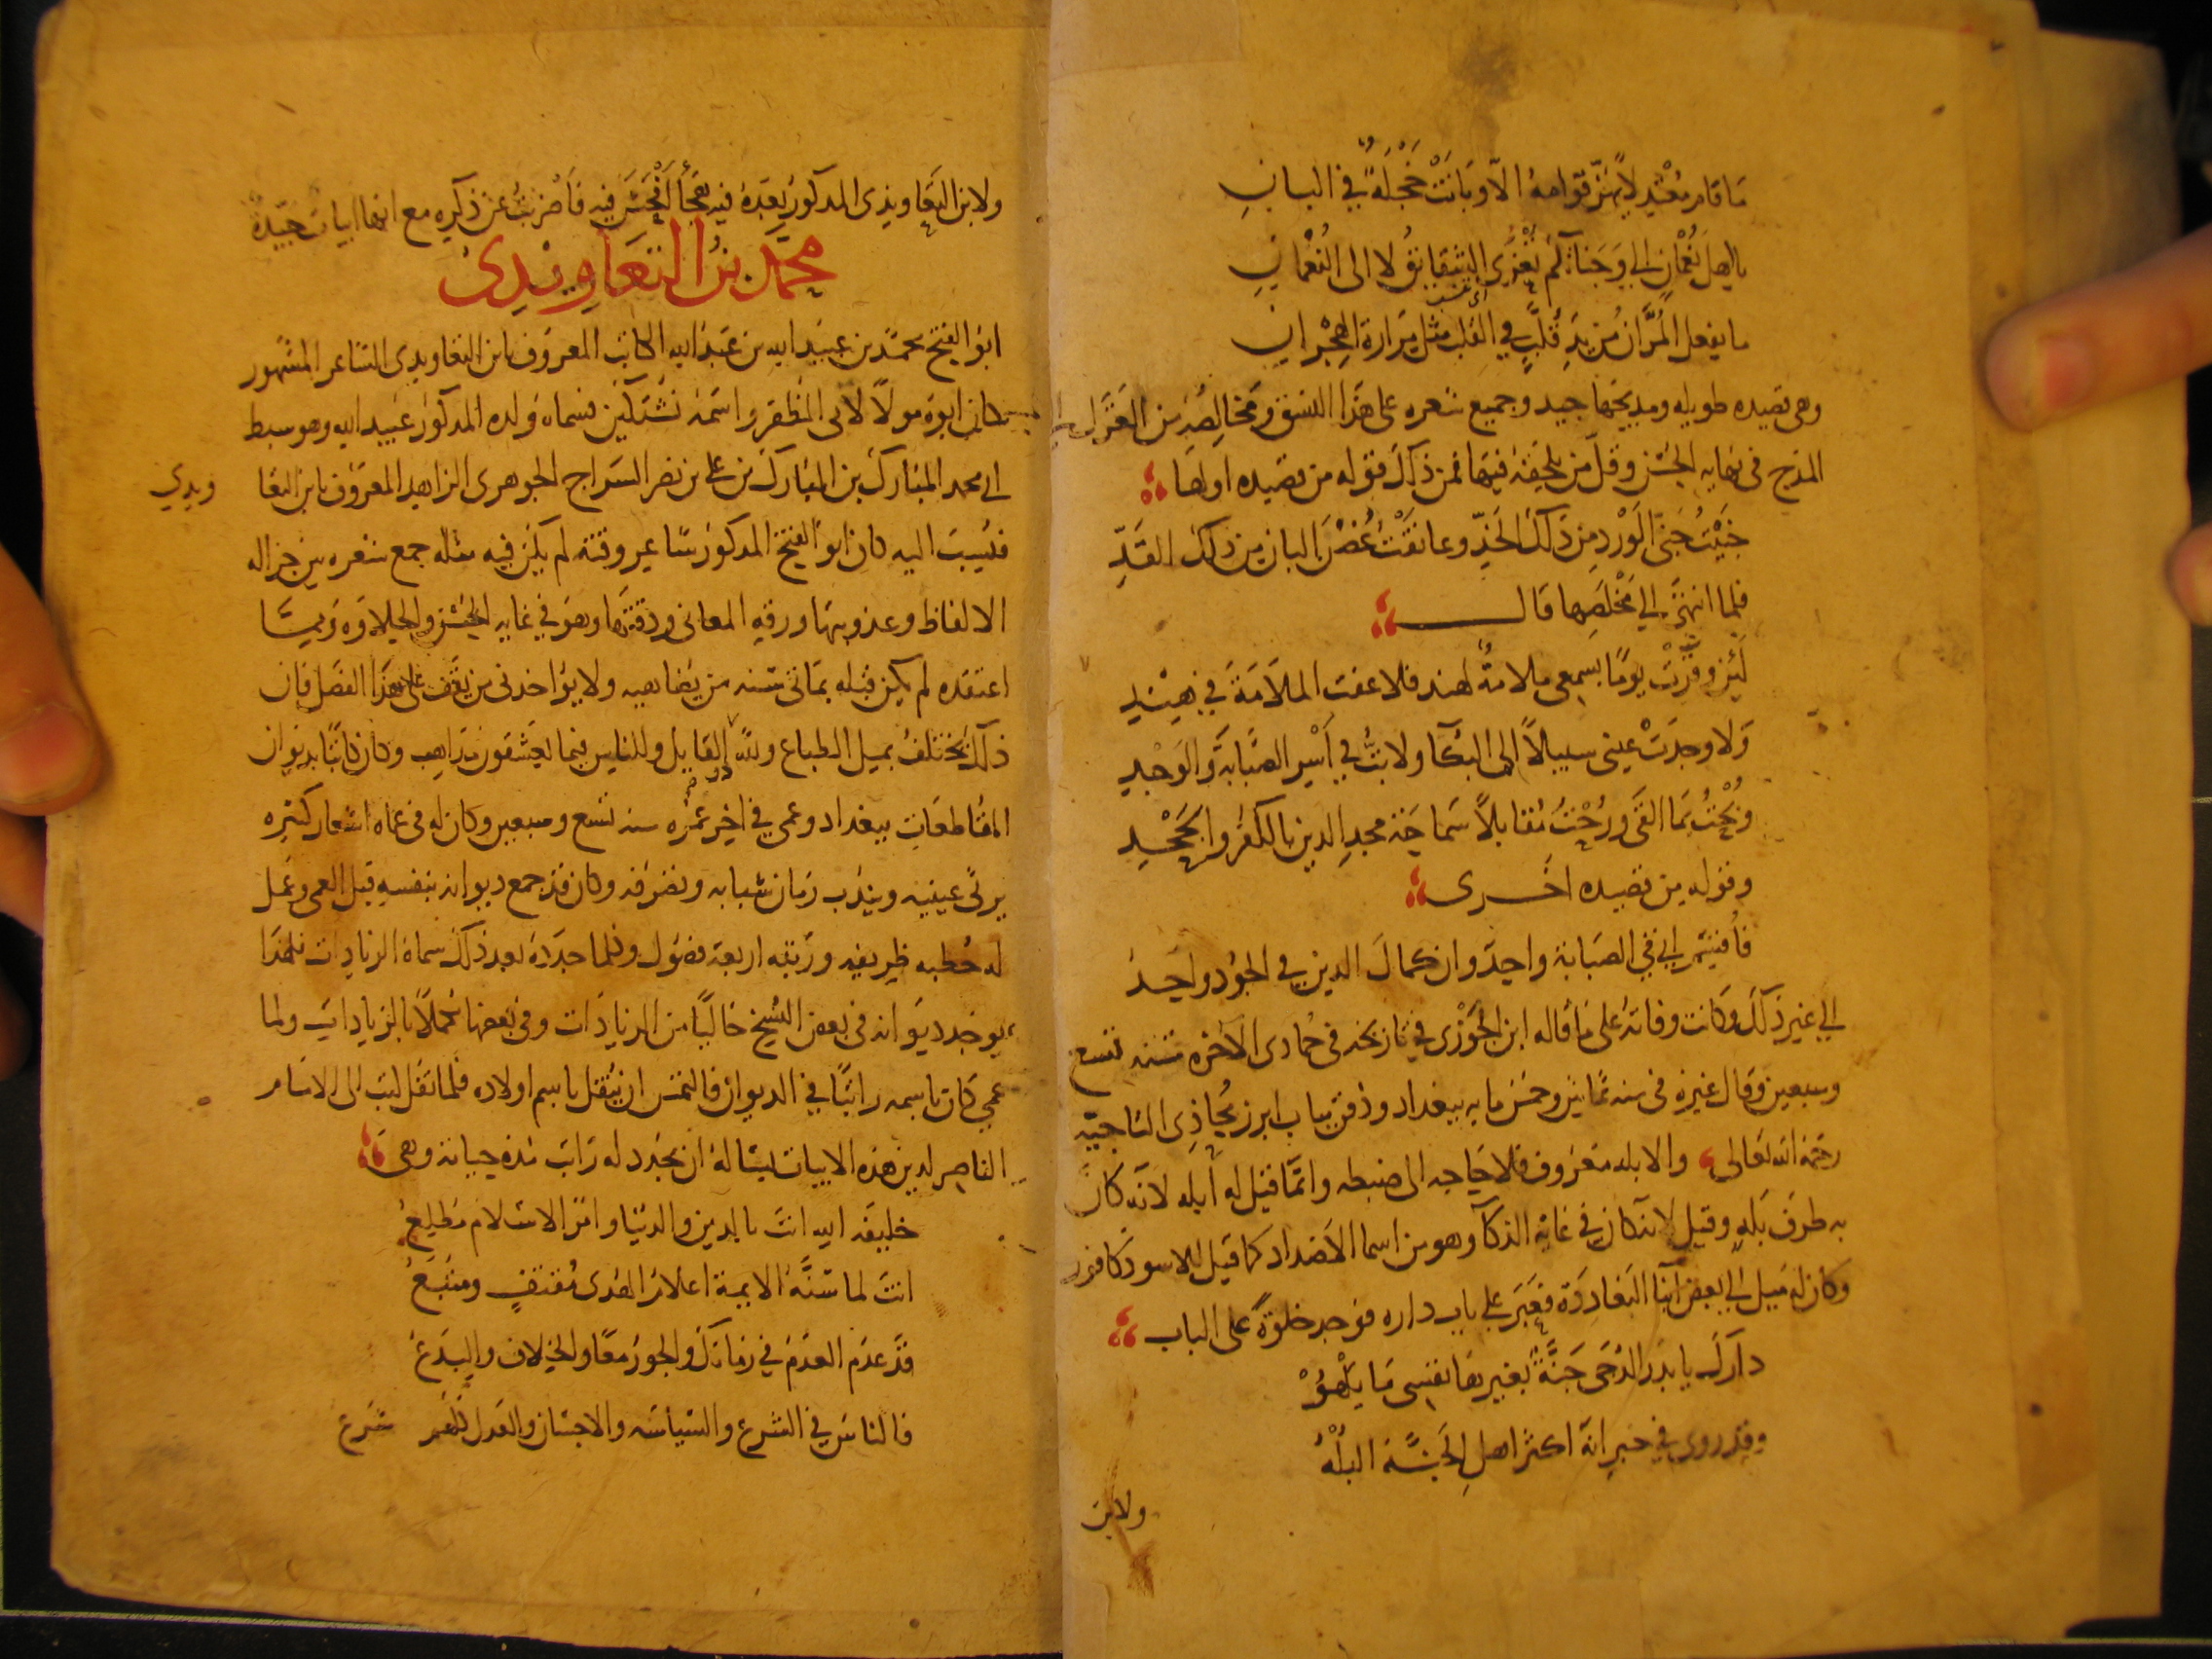 ما قام معتدلا يهز قوامه الا وبانت خجلة في البان
يا اهل نعمان الى وجناتكم تعزى الشقايق لا الى النعمان
ما يفعل المران من يد قلب في القلب مثل مرارة الهجران
وهي قصيده طويله ومديحها جيد وجميع شعره على هذا النسق ومخالصه من الغزل الى
المدح في نهايه الحسن وقل من يلحقه فيها فمن ذلك قوله من قصيده اولها
جنيت جني الورد من ذلك الخد وعانقت غصن البان من ذلك القد
فلما انتهى الى مخلصها قال
لئن وقرت يوما بسمعي ملامة لهند فلا عفت الملامة في هند
ولا وجدت عيني سبيلا الى البكا ولا بت في أسر الصبابة والوجد
وبحت بما القى ورحت مقابلا سماحة مجد الدين بالكفر والجحد
وقوله من قصيده اخرى
فأقسم اني في الصبابة واحد وان كمال الدين في الجود واحد
الى غير ذلك وكانت وفاته على ما قاله ابن الجوزي في تاريخه في جمادى الآخره سنه تسع
وسبعين وقال غيره في سنه ثمانين وخمس مايه ببغداد ودفن بباب ابرز محاذي التاجيه
رحمه الله تعالى والابله معروف فلا حاجه الى ضبطه وانما قيل له أبله لانه كان
به طرف بله وقيل لانه كان في غاية الذكآ وهو من اسما الاضداد كما قيل للاسود كافور
وكان له ميل الى بعض ابنا البغاددة فعبر على باب داره فوجد خلوة على الباب
دارك يا بدر الدجى جنة بغيرها نفسي ما تلهو
وقد روي في خبر انه اكثر اهل الجنة البله
ولابن
ولابن التعاويذي المذكور بعده فيه هجأ أفحش فيه فأضربت عن ذكره مع انها ابيات جيدة
محمد بن التعاويذي
ابو الفتح محمد بن عبيد الله بن عبد الله الكاتب المعروف بابن التعاويذي الشاعر المشهور
كان ابوه مولا لابن المظفر واسمه نشتكين فسماه ولده المذكور عبيد الله وهو سبط
ابى محمد المبارك بن المبارك بن علي بن نصر السراج الجوهري الزاهد المعروف بابن التعا ويذي
فنسب اليه كان ابو الفتح المذكور شاعر وقته لم يكن فيه مثله جمع شعره بين جزاله
الالفاظ وعذوبتها ورقه المعاني ودقتها وهو في غايه الحسن والحلاوه وفيما
اعتقده لم يكن قبله بمائتي سنه من يضاهيه ولا يؤاخذني من يقف على هذا الفصل فان
ذلك يختلف بميل الطباع ولله در القايل وللناس فيما يعشقون مذاهب وكان كاتبا بديوان
المقاطعات ببغداد وعمي في اخر عمره سنه تسع وسبعين وكان له في عماه اشعار كثيره
يرثي عينيه ويندب زمان شبابه وتصرفه وكان قد جمع ديوانه بنفسه قبل العمى وعمل
له خطبه ظريفه ورتبه اربعة فصول وكلما جدده بعد ذلك سماه الزيادات فلهذا
يوجد ديوانه في بعض النسخ خاليا من الزيادات وفي بعضها مكملا بالزيادات ولما
عمي كان باسمه راتبا في الديوان فالتمس ان ينقل باسم اولاده فلما نقل كتب الى الامام
الناصر لدين هذه الابيات يسأله ان يجدد له راتب مدة حياته وهي
خليفه الله انت بالدين والدنيا وامر الاسلام مطلع
انت لما سنه الايمة اعلام الهدى مقتف ومتبع
قد عدم العدم في زمانك والجور معا والخلاف والبدع
فالناس في الشرع والسياسه والاحسان والعدل كلهم شرع